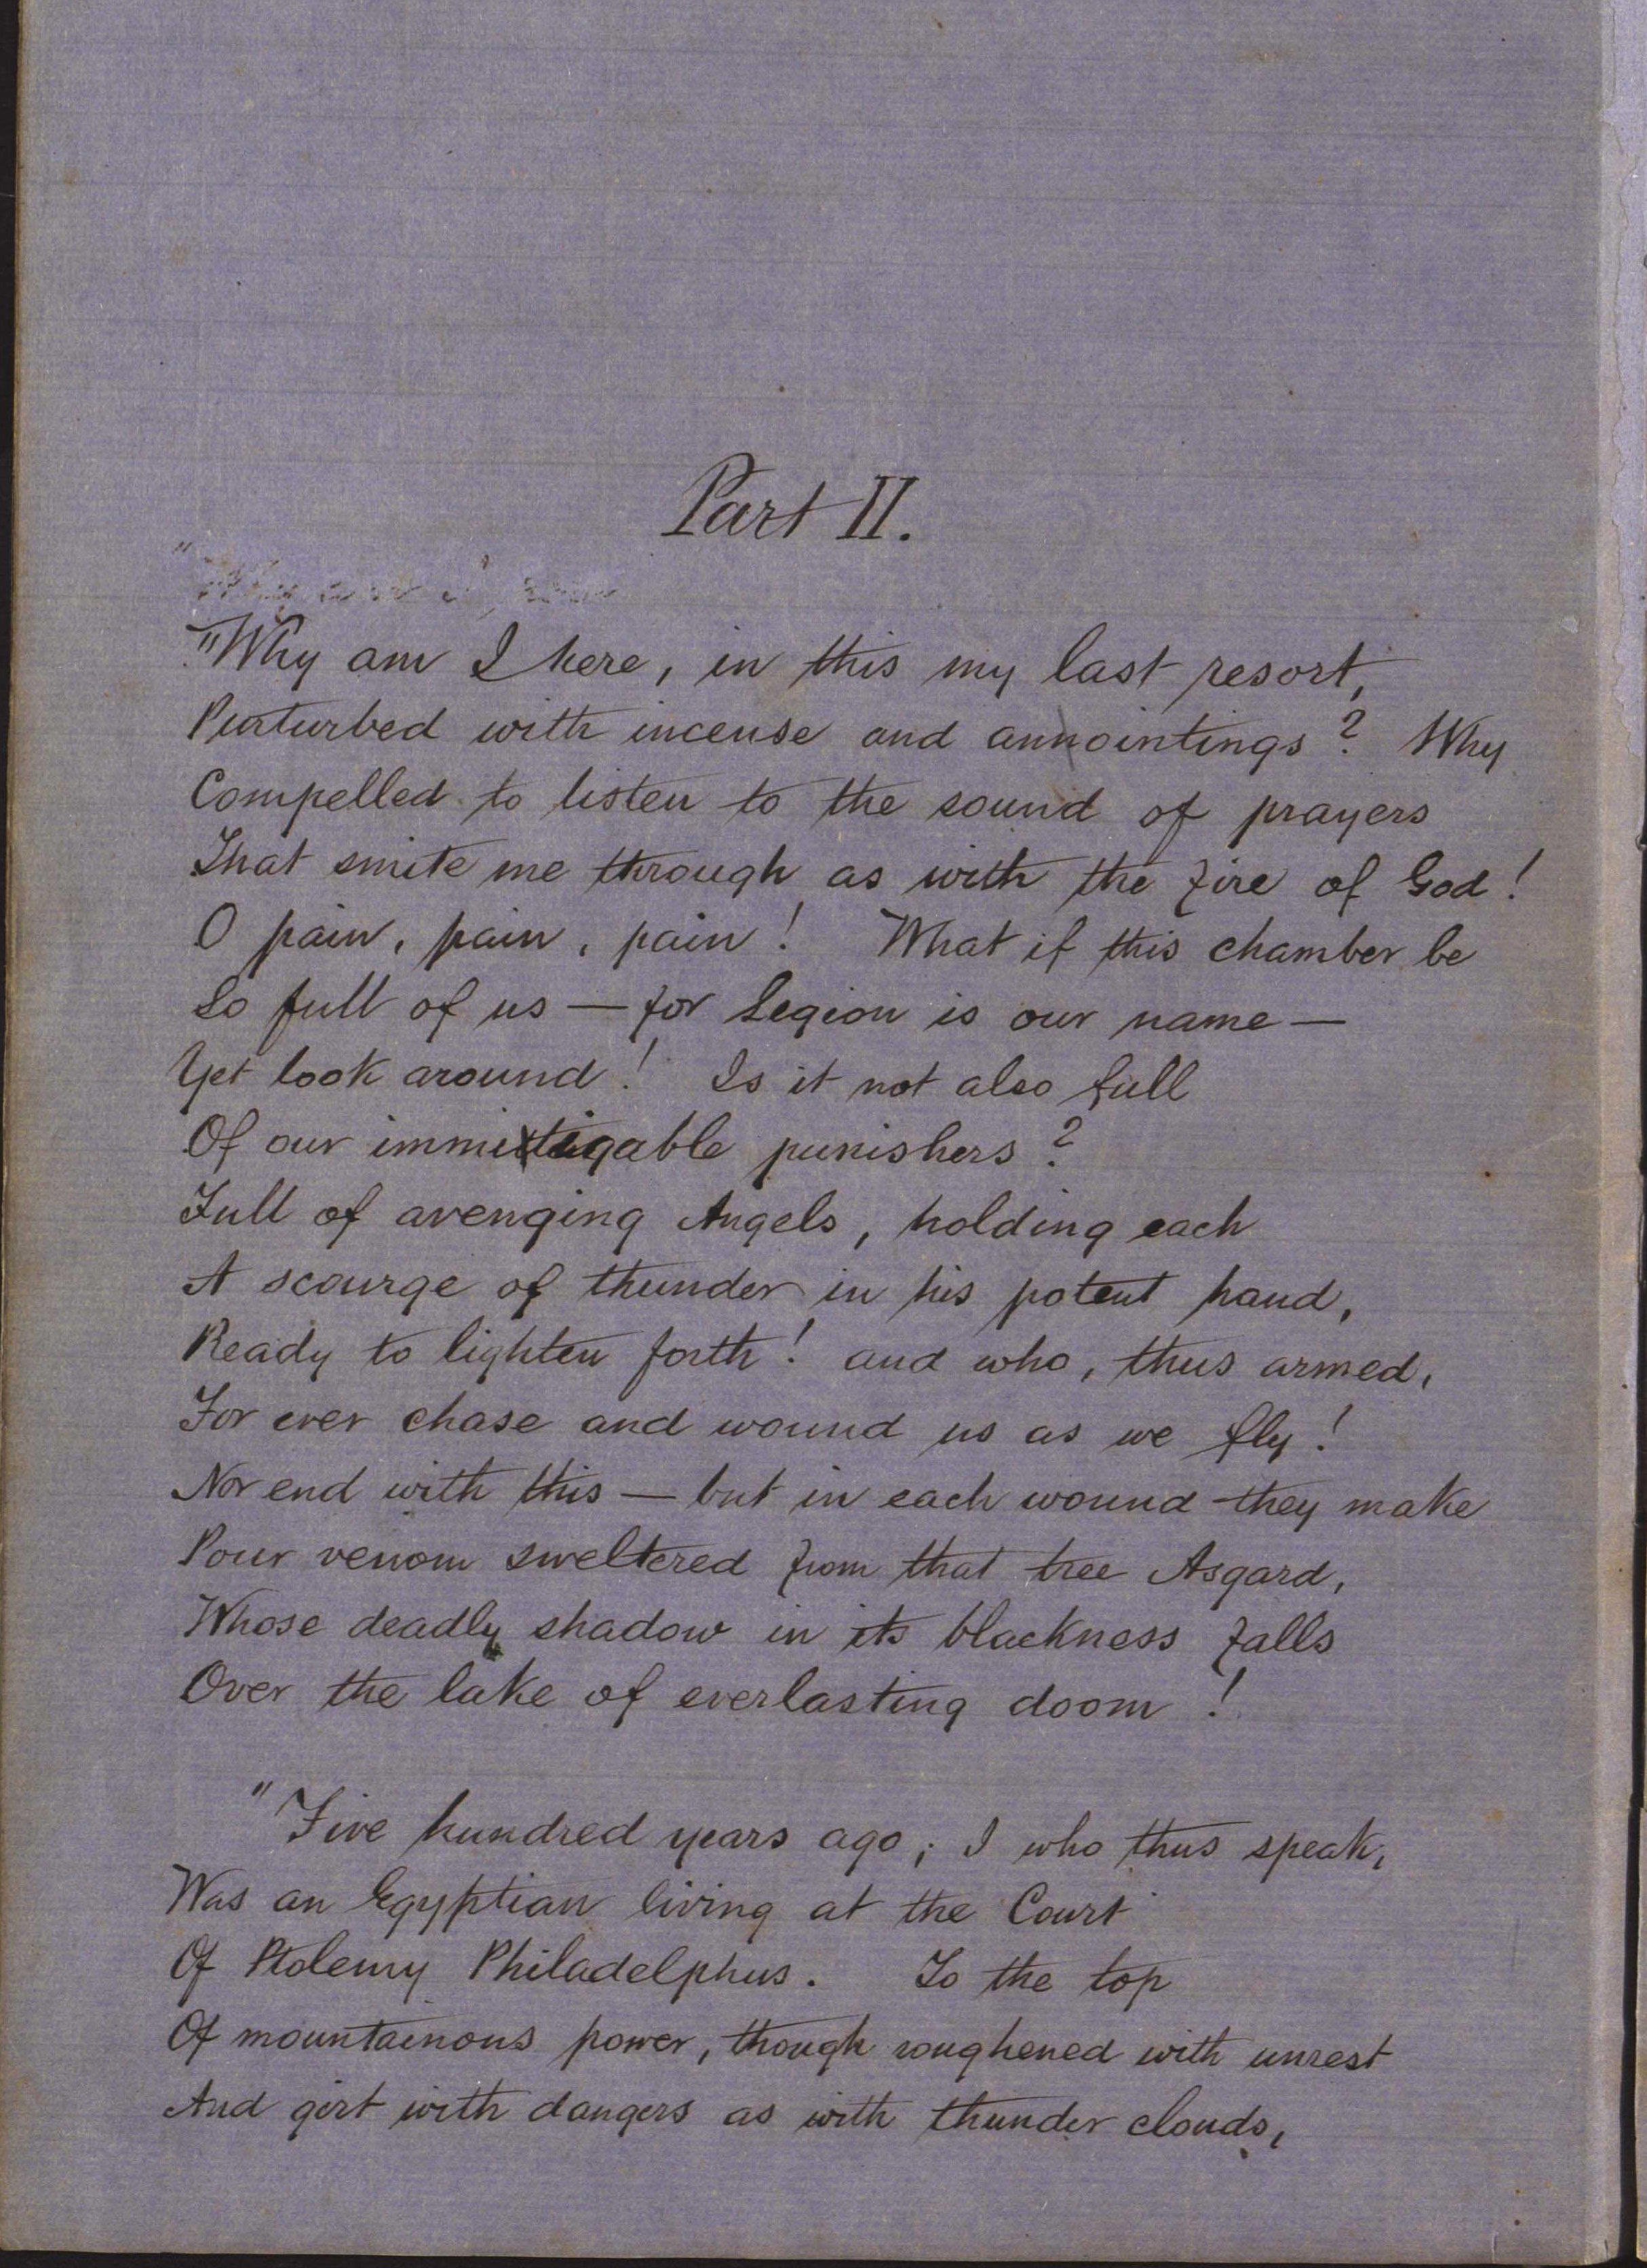 Part II.
"Why am I here, in this my last resort,
Perturbed with incense and annointings? Why
Compelled to listen to the sound of prayers
That smite me through as with the fire of God!
O pain, pain, pain! What if this chamber be
So full of us — for Legion is our name —
Yet look around! Is it not also full
Of our immitigable punishers?
Full of avenging Angels, holding each
A scourge of thunder in his potent hand,
Ready to lighten forth! and who, thus armed,
For ever chase and wound us as we fly!
Nor end with this — but in each wound they make
Pour venom sweltered from that tree Asgard,
Whose deadly shadow in its blackness falls
Over the lake of everlasting doom!
"Five hundred years ago, I who thus speak,
Was an Egyptian living at the Court
Of Ptolemy Philadelphus. To the top
Of mountainous power, though roughened with unrest
And girt with dangers as with thunder clouds,